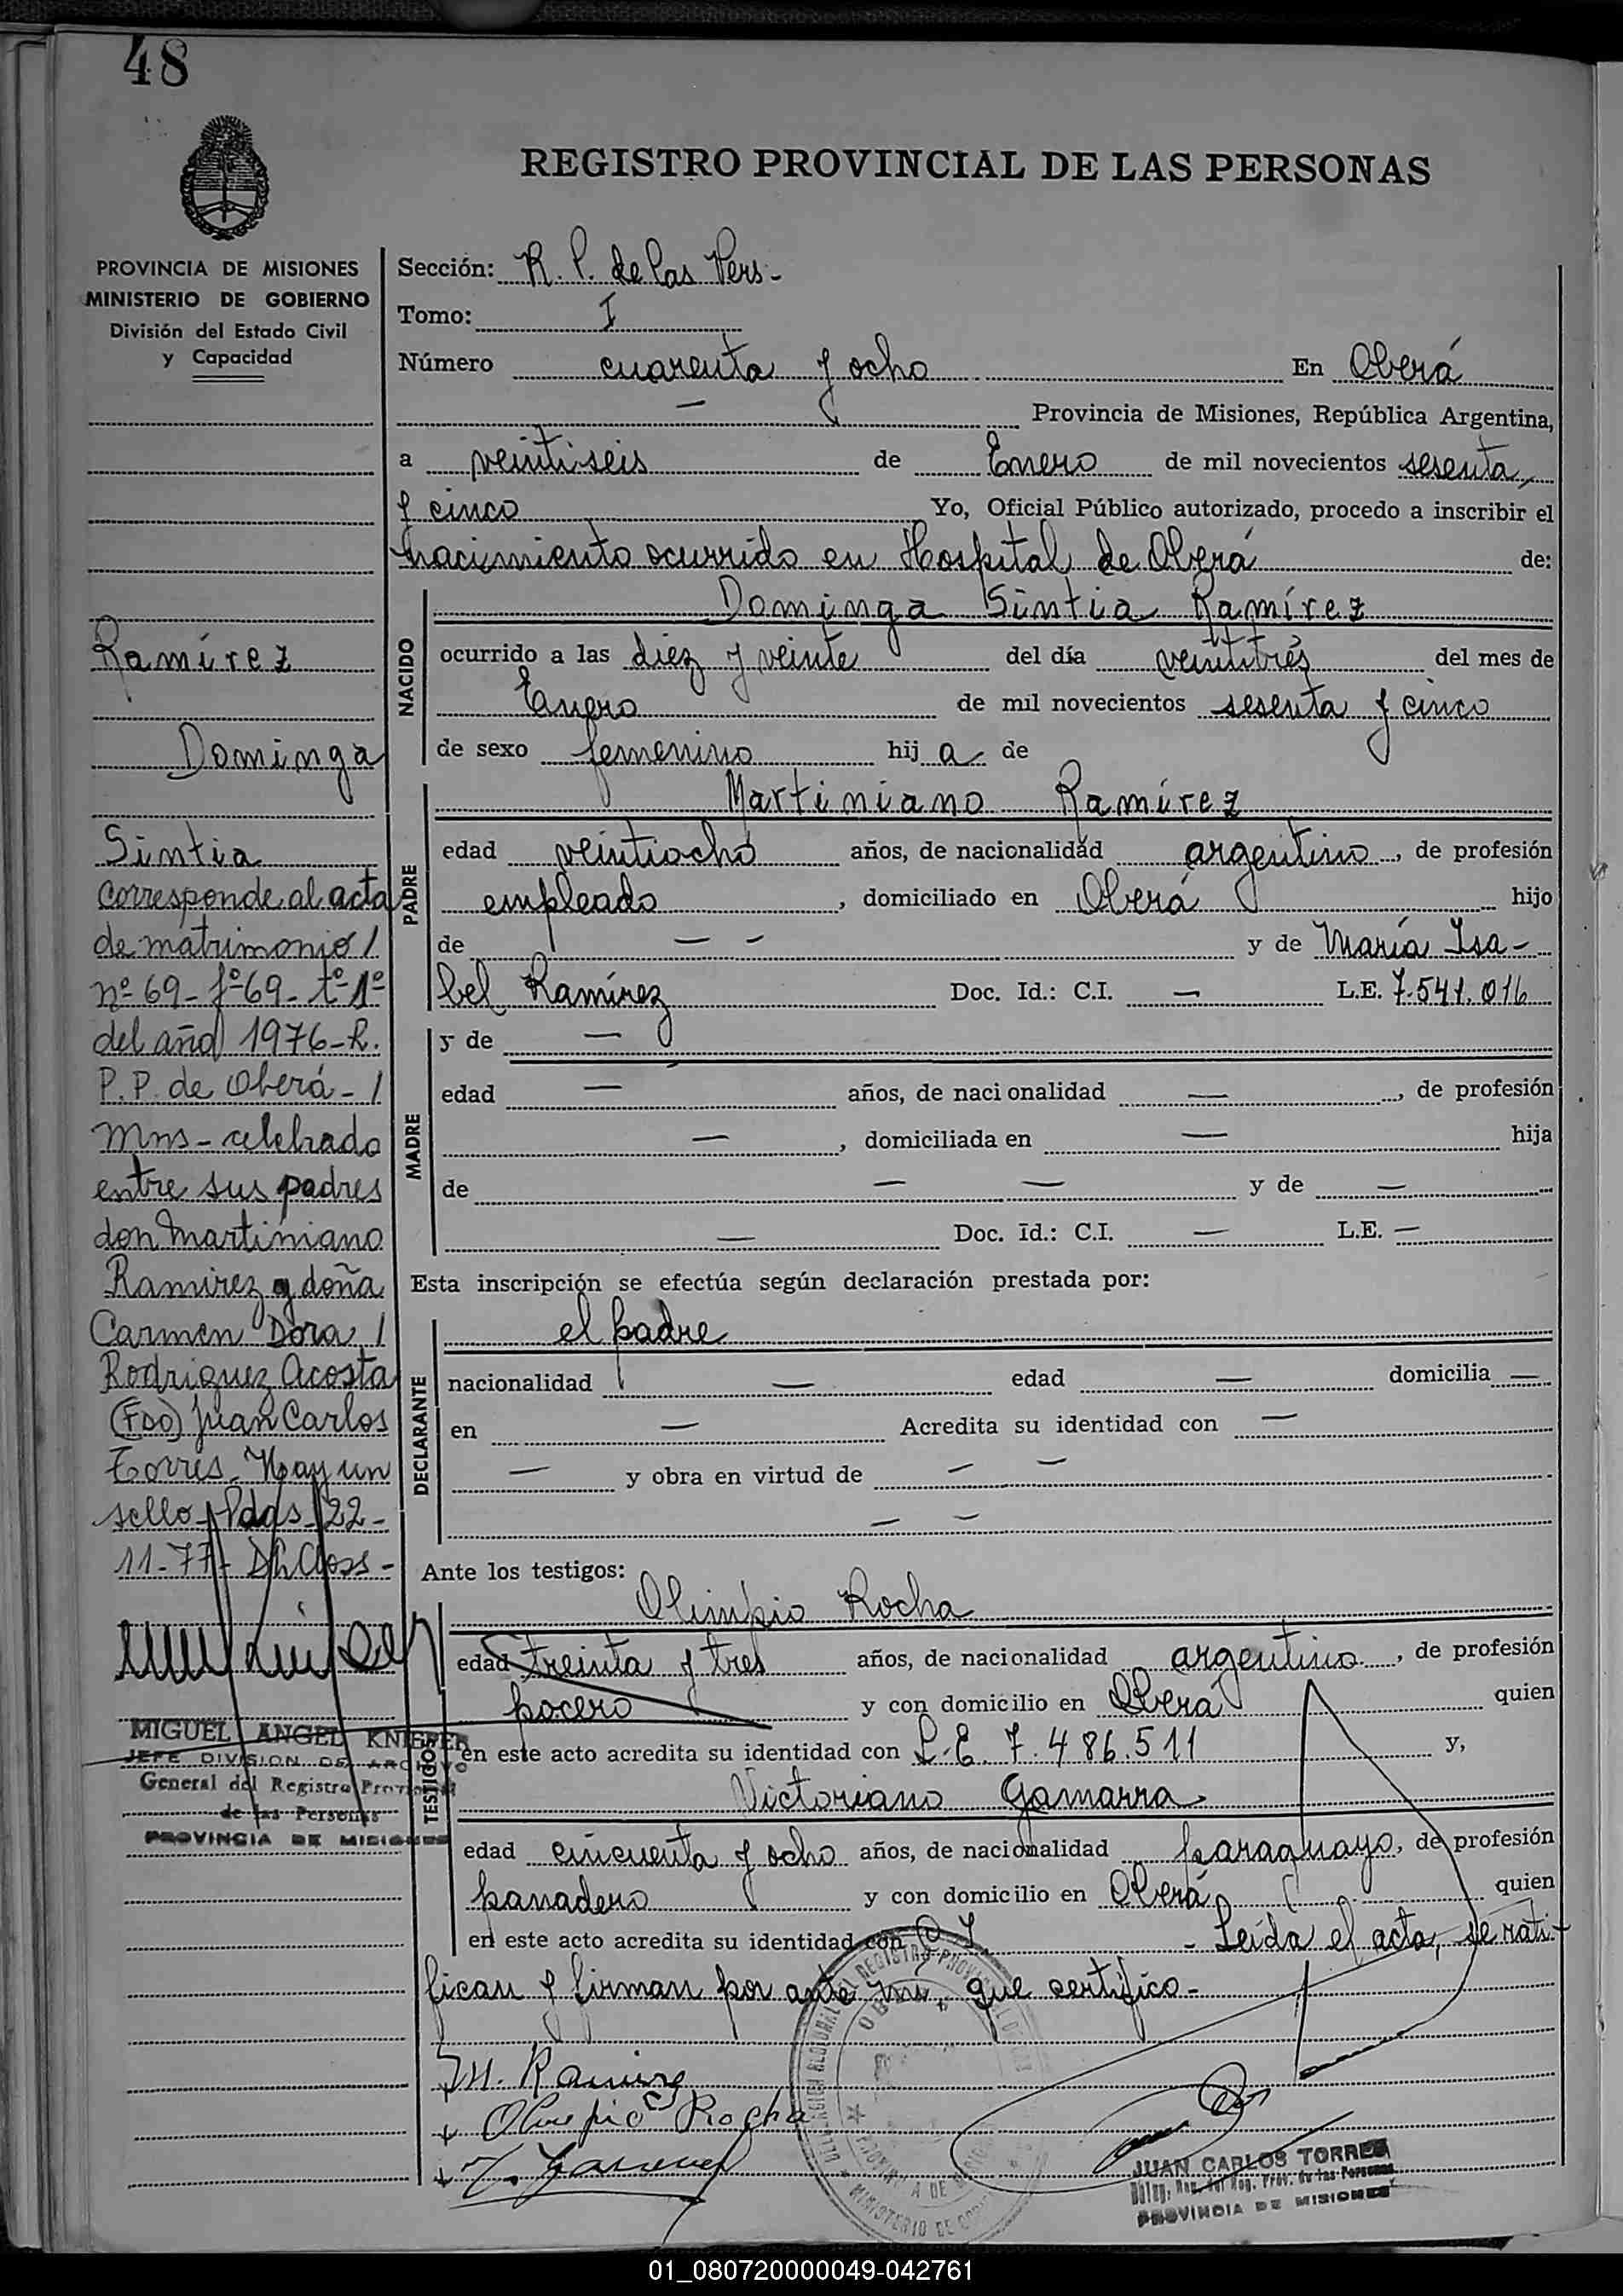 48
REGISTRO PROVINCIAL DE LAS PERSONAS
PROVINCIA DE MISIONES
MINISTERIO DE GOBIERNO
División del Estado Civil
y Capacidad
Ramírez
Dominga
Sintia
corresponde al acta
de matrimonio /
nº 69 - fº 69 - tº 1º
del año 1976 - R.
P. P. de Oberá - /
Mns - celebrado
entre sus padres
don Martiniano
Ramirez y doña
Carmen Dora /
Rodriguez Acosta
(Fdo) Juan Carlos
Torres. Hay un
sello - Pdas - 22 -
11-77-
MIGUEL ANGEL KNIEPER
JEFE DIVISION DE ARCHIVO
General del Registro Provincial
de las Personas
PROVINCIA DE MISIONES
Sección: R. P. de las Pers -
Tomo: I
Número cuarenta y ocho En Oberá
— Provincia de Misiones, República Argentina,
a veintiseis de Enero de mil novecientos sesenta
y cinco Yo, Oficial Público autorizado, procedo a inscribir el
nacimiento ocurrido en Hospital de Oberá de:
NACIDO
Dominga Sintia Ramírez
ocurrido a las diez y veinte del día veintitrés del mes de
Enero de mil novecientos sesenta y cinco
de sexo femenino hij a de
PADRE
Martiniano Ramírez
edad veintiocho años, de nacionalidad argentino, de profesión
empleado, domiciliado en Oberá hijo
de — — y de María Isa-
bel Ramírez Doc. Id.: C.I. — L.E. 7.541.016
MADRE
y de —
edad — años, de nacionalidad —, de profesión
—, domiciliada en — hija
de — — y de —
— Doc. Id.: C.I. — L.E. —
Esta inscripción se efectúa según declaración prestada por:
DECLARANTE
el padre
nacionalidad — edad — domicilia —
en — Acredita su identidad con —
— y obra en virtud de — —
— —
Ante los testigos:
TESTIGOS
Olimpio Rocha
edad treinta y tres años, de nacionalidad argentino, de profesión
pocero y con domicilio en Oberá quien
en este acto acredita su identidad con L.E. 7.486.511 y,
Victoriano Gamarra
edad cincuenta y ocho años, de nacionalidad paraguayo, de profesión
panadero y con domicilio en Oberá quien
en este acto acredita su identidad con - Leída el acta, se rati-
fican y firman por ante mi, que certifico -
M. Ramirez
Olimpio Rocha
JUAN CARLOS TORRES
PROVINCIA DE MISIONES
01_080720000049-042761